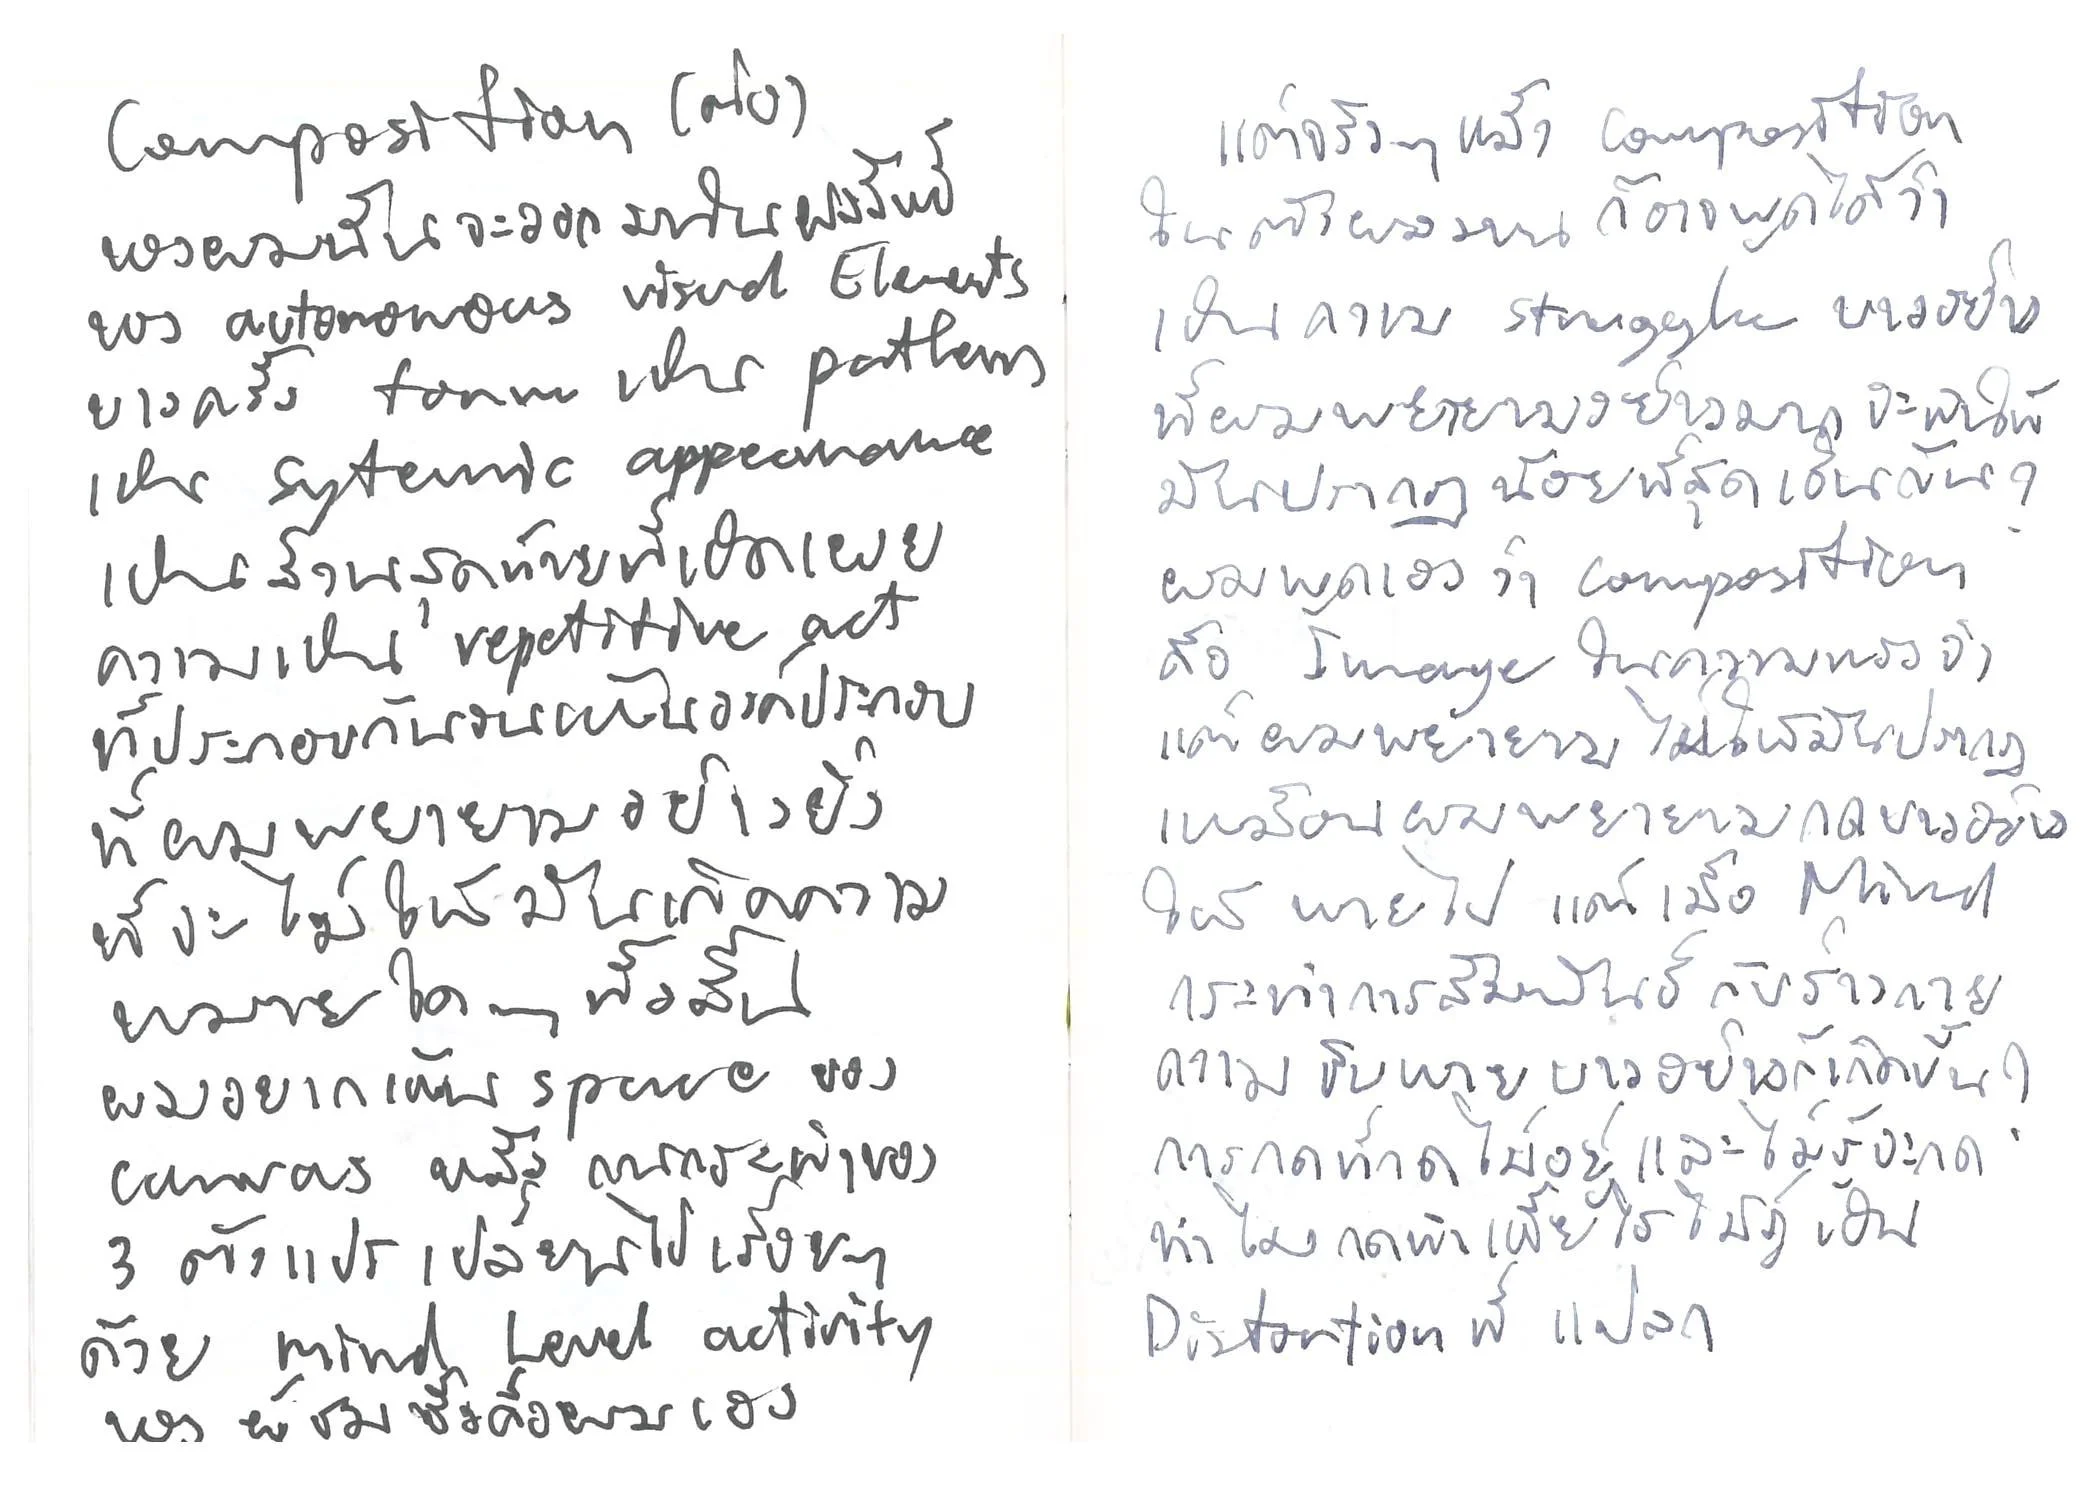 Composition (ต่อ)
ของผมนั้น จะออกมาในผลลัพธ์
ของ autonomous visual Elements
บางครั้ง form เป็น pattern
เป็น Sytemic appearance
เป็นส่วนสุดท้ายที่เปิดเผย
ความเป็น repetitive act
ที่ประกอบกันจนเห็นองค์ประกอบ
ที่ผมพยายามอย่างยิ่ง
ที่จะไม่ให้มันเกิดความ
หมายใดๆ ทั้งสิ้น
ผมอยากเห็น space ของ
canvas หรือ การกระทำของ
3 ตัวแปร เปลี่ยนไปเรื่อยๆ
ด้วย mind Level activity
ของ ผู้ชม ซึ่งคือผมเอง
แต่จริงๆ แล้ว composition
ในตัวผลงาน ก็อาจพูดได้ว่า
เป็นความ struggle บางอย่าง
ที่ผมพยายามอย่างมาก จะทำให้
มันปรากฏ น้อยที่สุด เช่นกัน?
ผมพูดเองว่า composition
คือ Image ในความทรงจำ
แต่ผมพยายาม ไม่ให้มันปรากฏ
เหมือนผมพยายามกดบางอย่าง
ให้ หายไป แต่เมื่อ Mind
กระทำการสัมพันธ์ กับร่างกาย
ความ ฉิบหาย บางอย่างก็เกิดขึ้น?
การกดที่กดไม่อยู่ และไม่รู้จะกด
ทำไม กดทำเหี้ยไร ไม่รู้ เป็น
Distortion ที่ แปลก